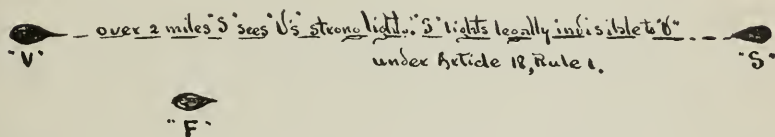 over 2 miles "S" sees "V's" strong light. "S" lights legally invisible to "V"
under Article 18, Rule 1.
"V"
"S"
"F"